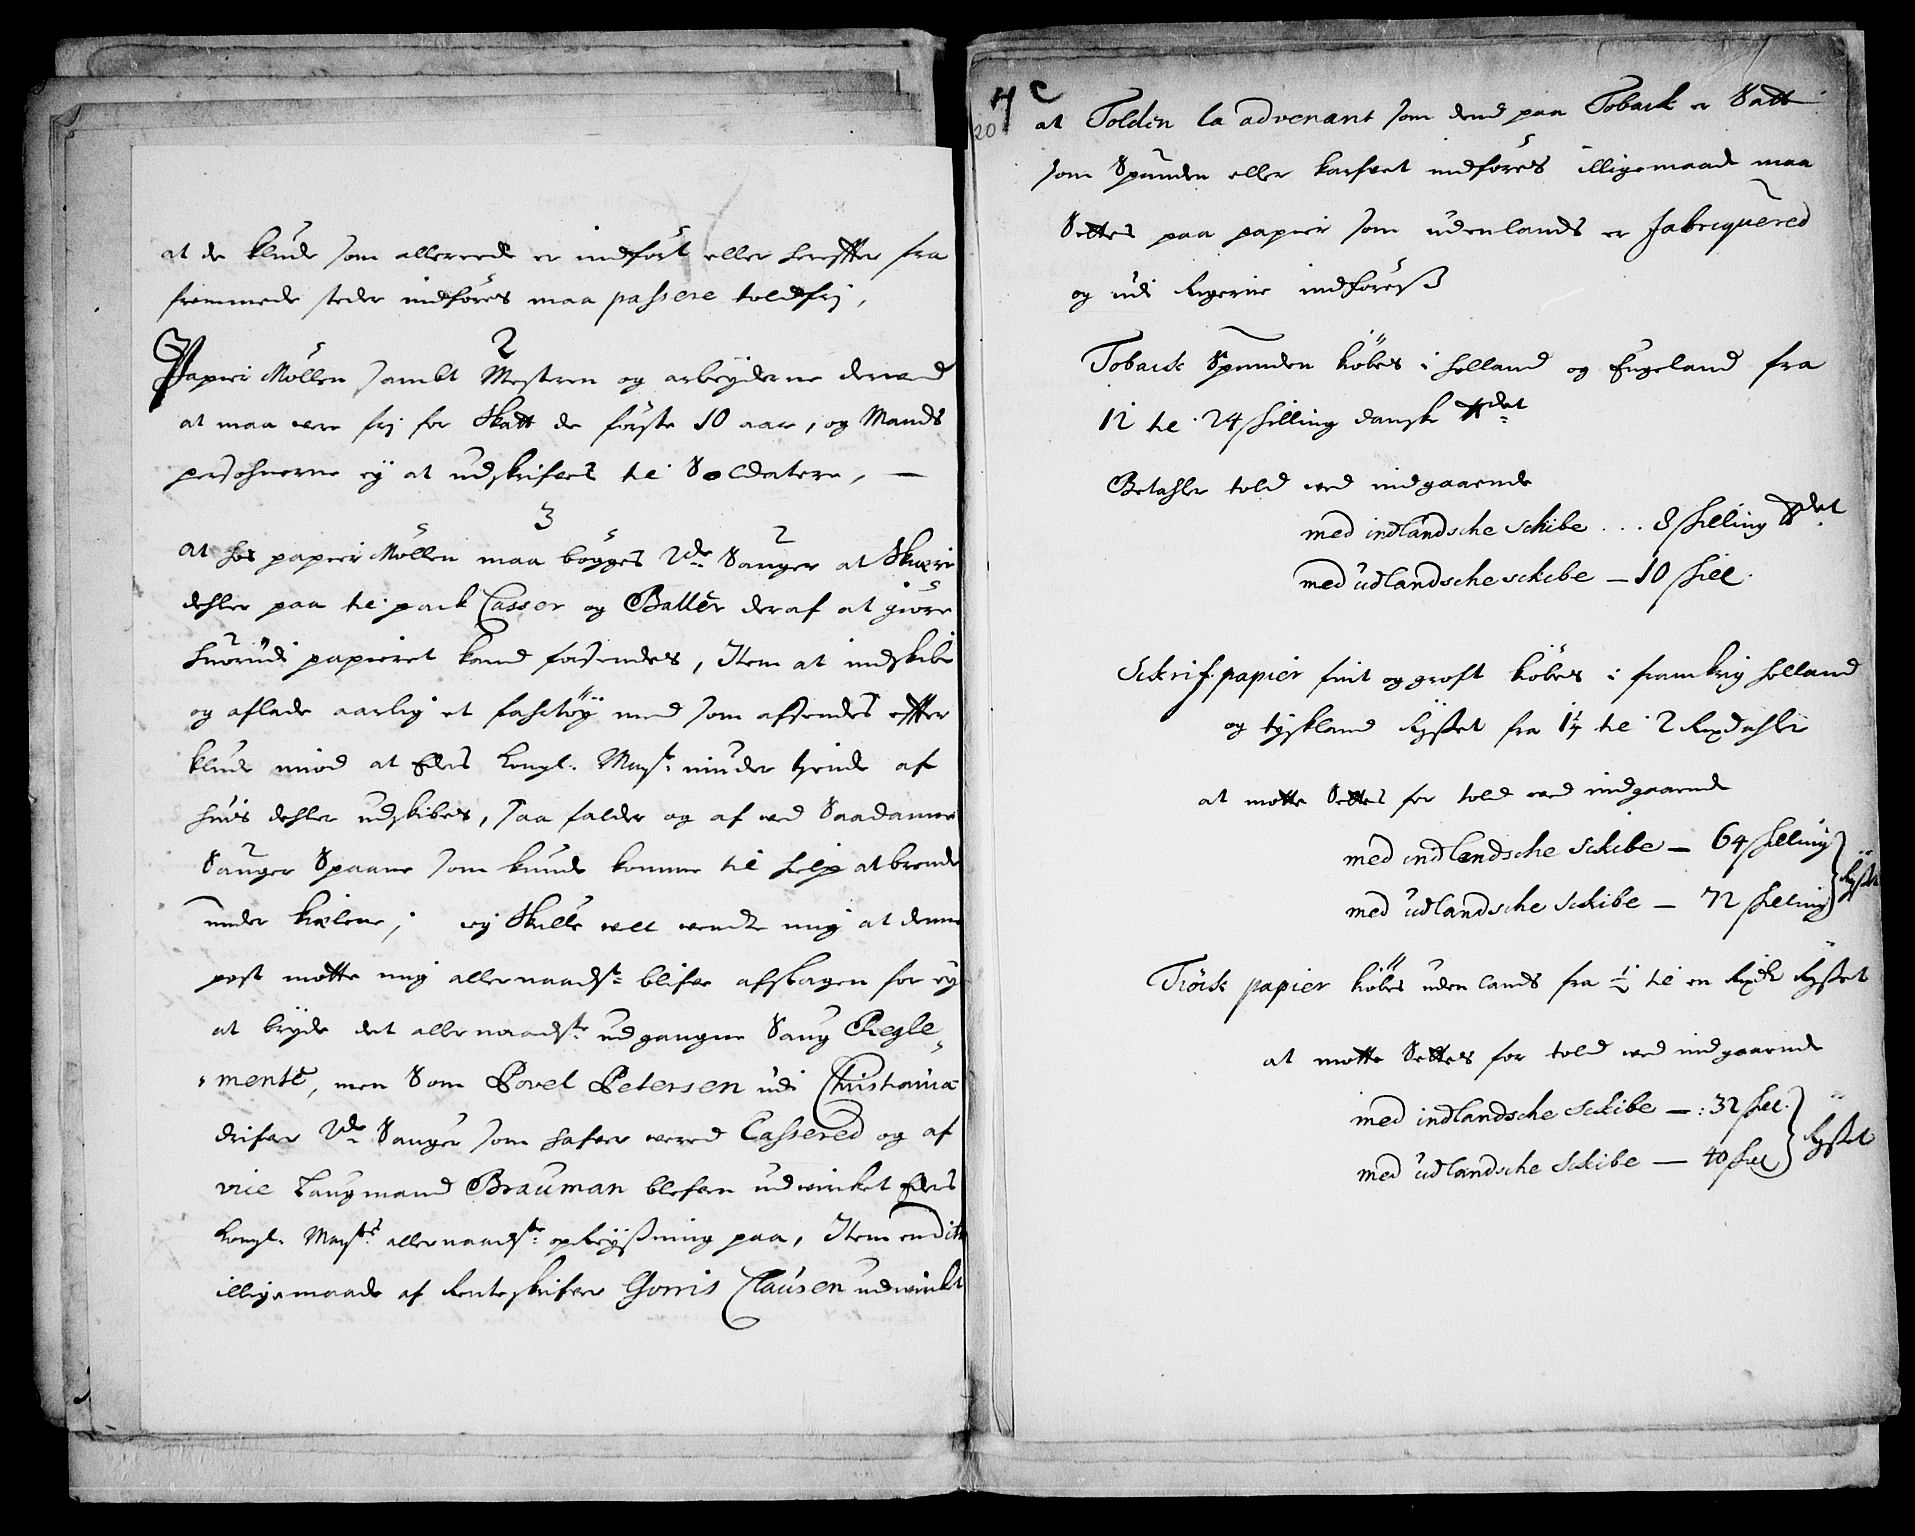 at de klude som allereede er indfört eller herefter fra
fremmede steder indföres maa passere toldfrj,
2
Papier Möllen sambt Mesteren og arbeyderne derved
at maa vere frj for Skatt de förste 10 aar, og Mands
persohnerne ej at udskrifves til Soldatere, —
3
at hos papier Möllen maa bögges 2de Sauger at Skiære
dehler paa til pack Casser og Baller deraf at giöre
hvorudi papieret kand forsendes, Item at indskibe
og aflade aarlig et fahrtöy med som afsendes efter
klude imod at Eders kongl. Mayst: nÿder tjende af
huis dehler udskibes, saa falder og af ved Saadanne
Sauger Spaane som kunde komme til hielp at brende
under kielene, ej Skulle vell vendte mig at denne
post motte mig allernaadst: blifve afslagen for ej
at bryde det allernaadste: udgangne Saug Regle-
mente, men Som Povel Petersen udi Christiania
drifver 2de Sauger som hafver vered Cassered og af
vice Laugmand Brauman blefven udvircket Eders
kongl: Maysts: allernaadst: opreysning paa, Item en dito
illigemaade af Renteskrifver Gorris Clausen udvirckt
4 C
20
at Tolden la advenant som dend paa Toback er Satt
som Spunden eller karfvet indföres illigemaade maa
Settes paa papier som udenlands er fabriquered
og udi Rigerne indföres
Toback Spunden köbes i Holland og Engeland fra
12 til 24 skilling dansk ℔det
Betahler told ved indgaaende
med indlandsche schibe ... 8 skilling ℔det
med udlandsche schibe — 10 skill.
Schrif papier fint og groft köbes i franckrig Holland
og tyskland Rysset fra 1½ til 2 Rixdahler
at motte Settes for told ved indgaaende
med indlandsche Schibe — 64 skilling
med udlandsche Schibe — 72 skilling } Rysset
Tröck papier köbes uden lands fra ½ til en Rixdr Rysset
at motte Settes for told ved indgaaende
med indlandsche Schibe — : 32 skil.
med udlandsche Schibe — 40 skil } Rysset